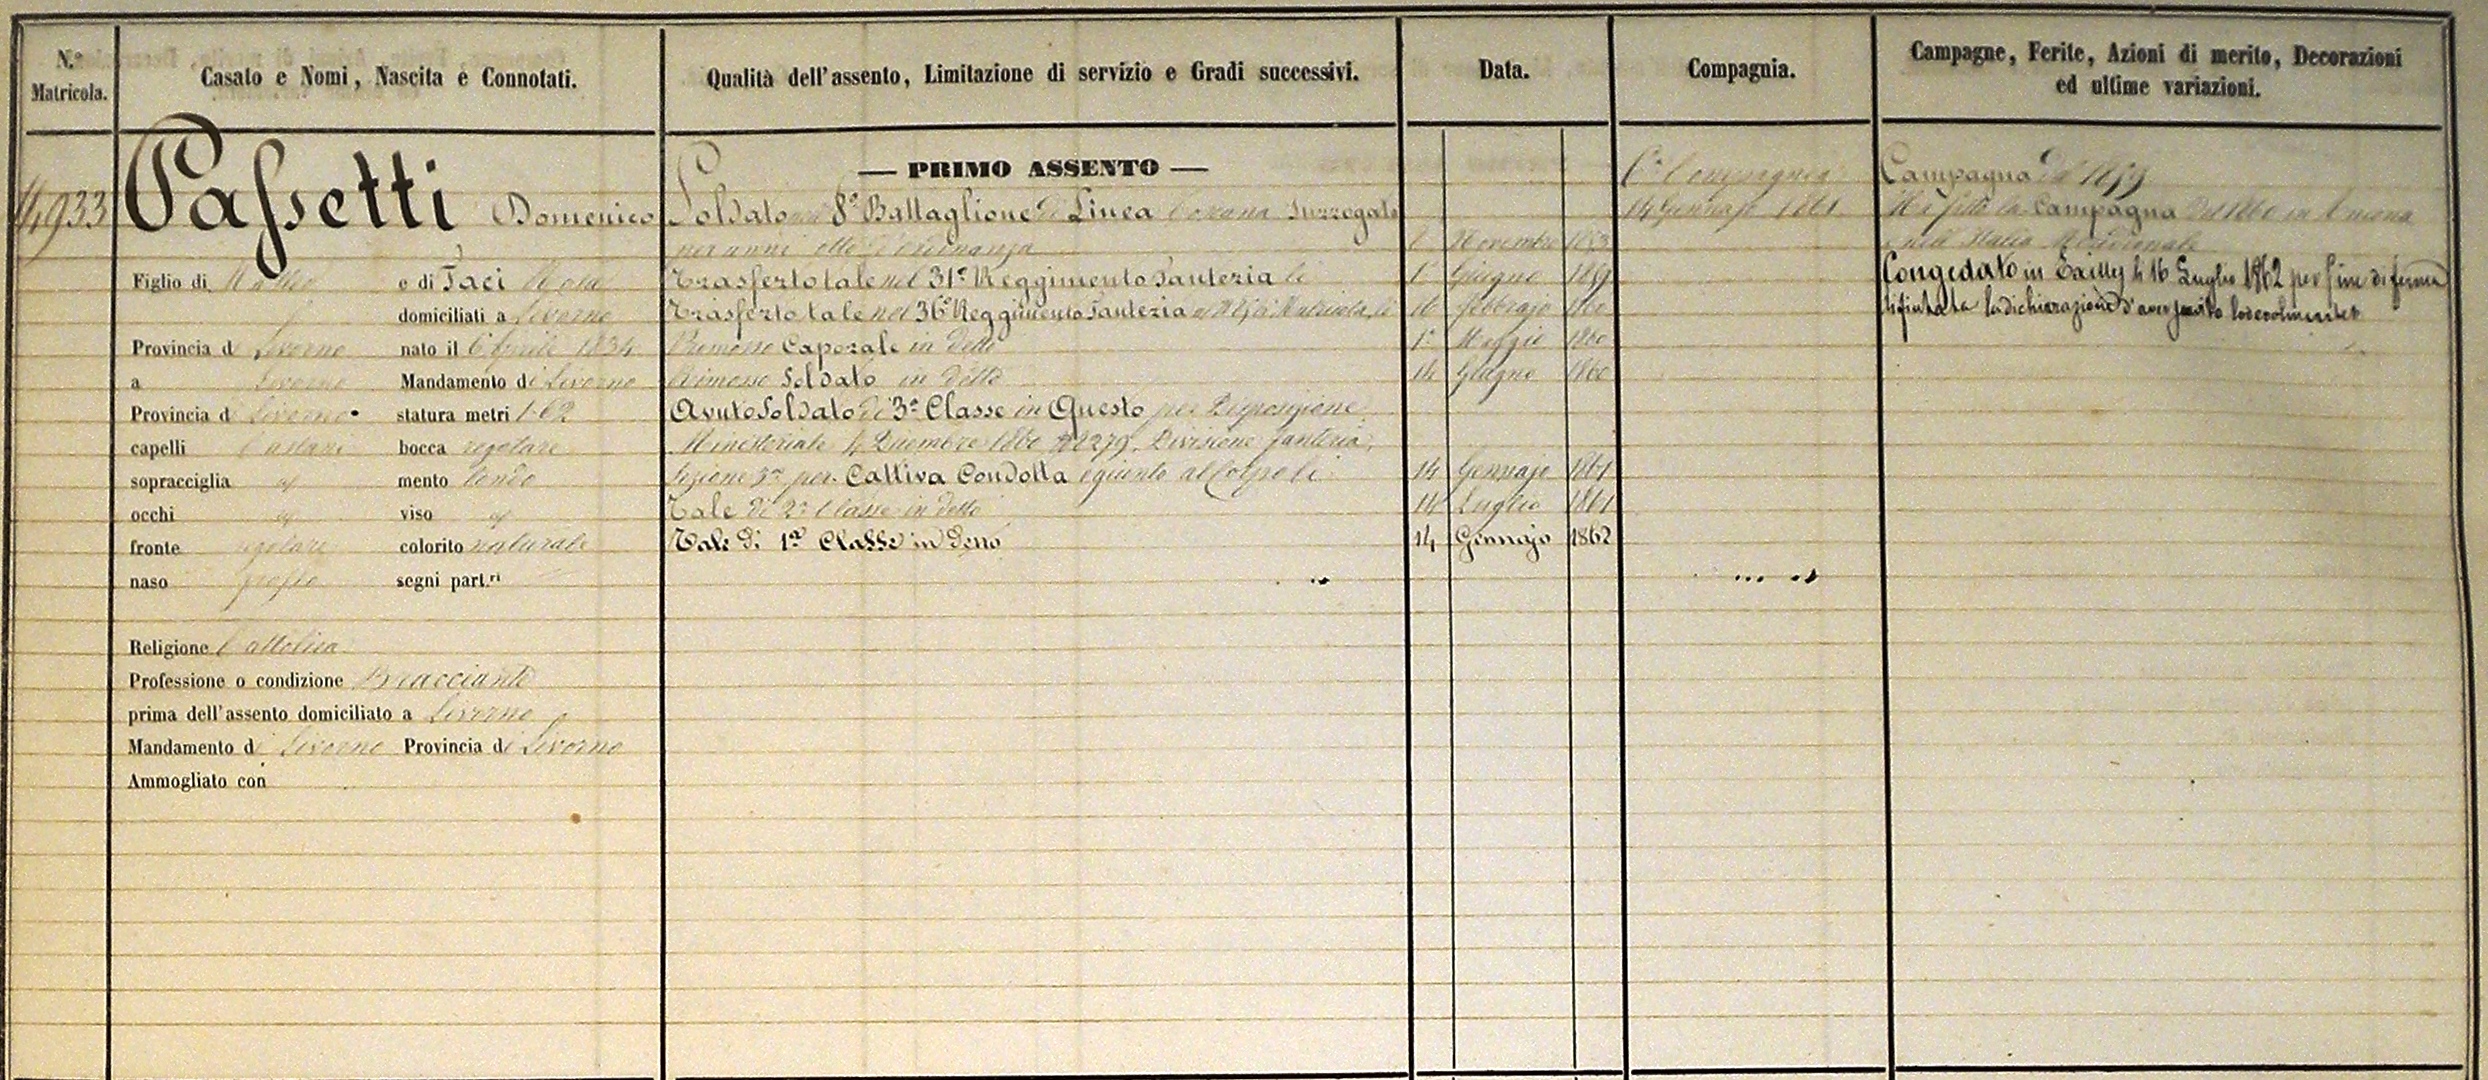 N.º Matricola.
Casato e Nomi, Nascita e Connotati.
Qualità dell'assento, Limitazione di servizio e Gradi successivi.
Data.
Compagnia.
Campagne, Ferite, Azioni di merito, Decorazioni
ed ultime variazioni.
14933
Passetti Domenico
Figlio di Matteo e di Taci Rosa
domiciliati a Livorno
Provincia di Livorno nato il 6 Aprile 1834
a Livorno Mandamento di Livorno
Provincia di Livorno statura metri 1.62
capelli Castani bocca regolare
sopracciglia id mento tondo
occhi id viso id
fronte regolare colorito naturale
naso grosso segni part.ri
Religione Cattolica
Professione o condizione Bracciante
prima dell'assento domiciliato a Livorno
Mandamento di Livorno Provincia di Livorno
Ammogliato con
— PRIMO ASSENTO —
Soldato nel 8º Battaglione di Linea Toscana Surrogato
per anni otto d'ordinanza 1 Novembre 1853
Trasferto tale nel 31º Reggimento Fanteria li 1º Giugno 1859
Trasferto tale nel 36º Reggimento Fanteria Matricola li 16 Febbrajo 1860
Promosso Caporale in detto 1º Maggio 1860
Rimosso Soldato in detto 14 Giugno 1860
Avuto Soldato di 3ª Classe in Questo per Disposizione
Ministeriale 4 Dicembre 1860 Nº 2279, Divisione Fanteria,
Sezione 3ª per Cattiva Condotta e giunto al Corpo li 14 Gennajo 1861
Tale di 2ª Classe in detto 14 Luglio 1861
Tale di 1ª Classe in detto 14 Gennajo 1862
Cª Compagnia
14 Gennajo 1861
Campagna del 1859
Ha fatto la Campagna del 1860 in Ancona
e nell'Italia Meridionale
Congedato in li 16 Luglio 1862 per fine di ferma
rifiutata la dichiarazione d'aver servito lodevolmente